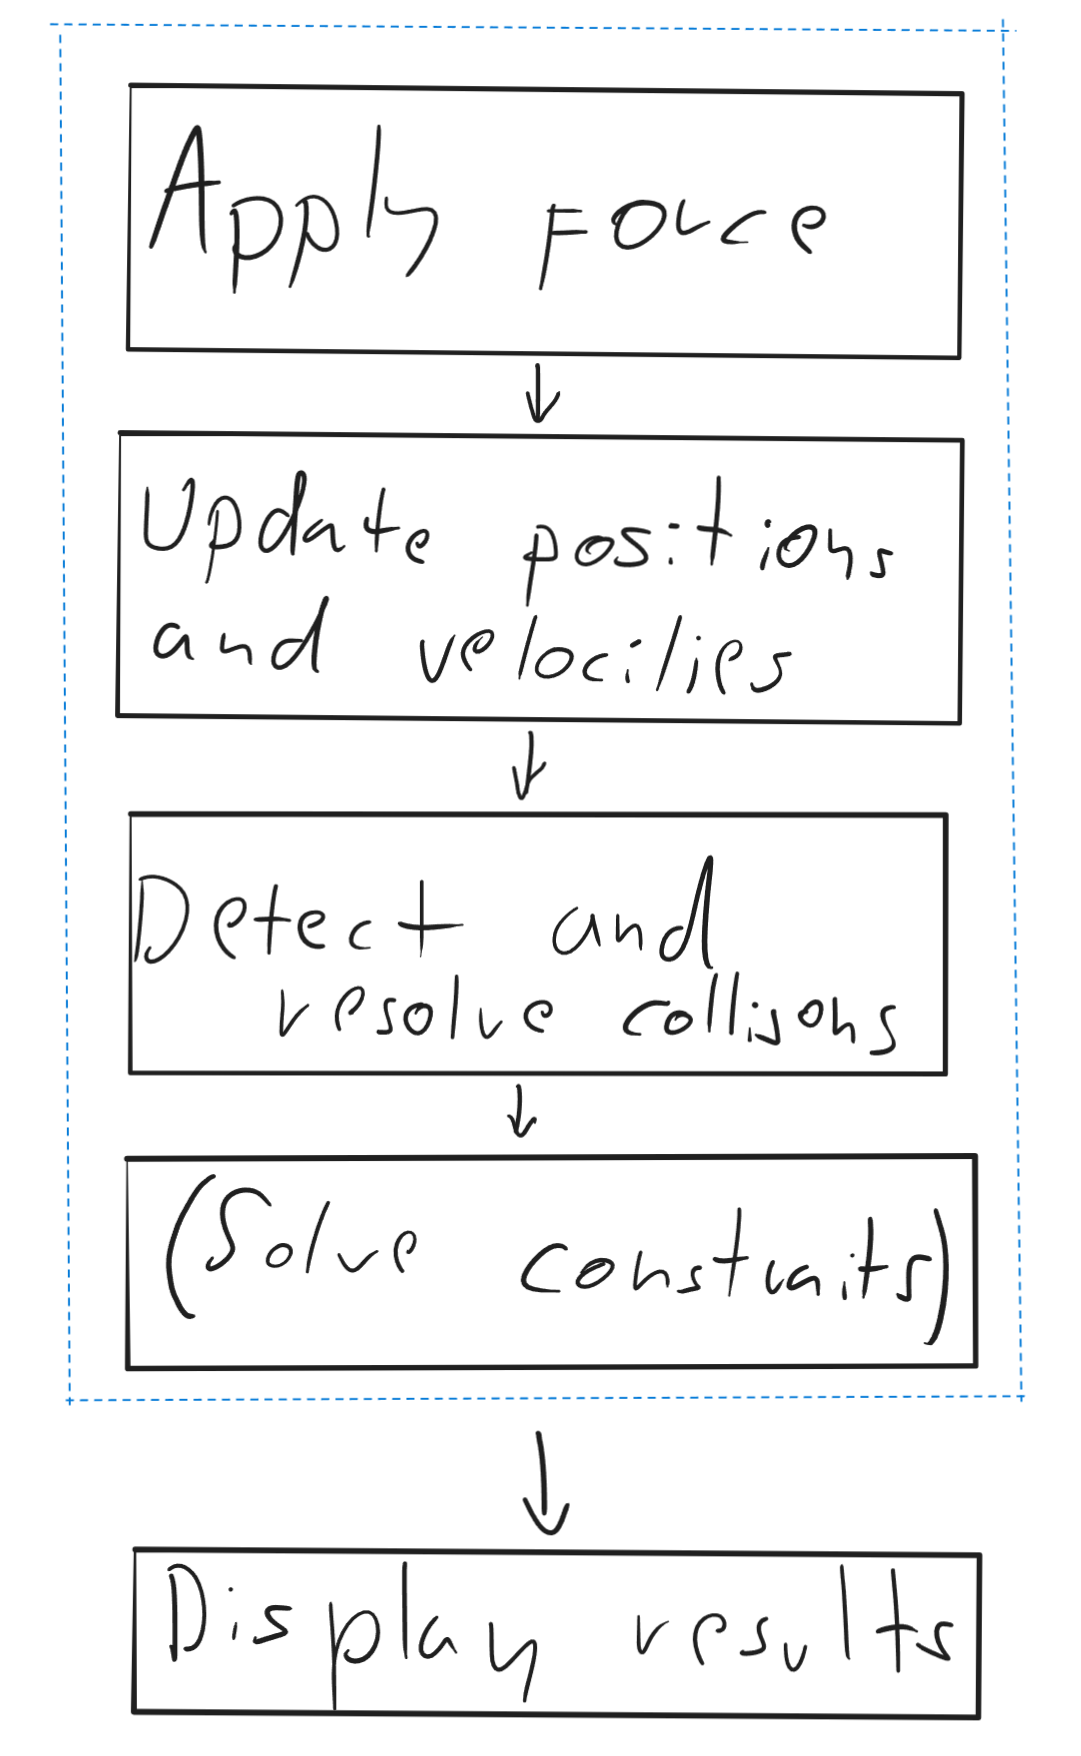 Apply Force
Update positions
and velocities
Detect and
resolve collisons
(Solve constraits)
Display results